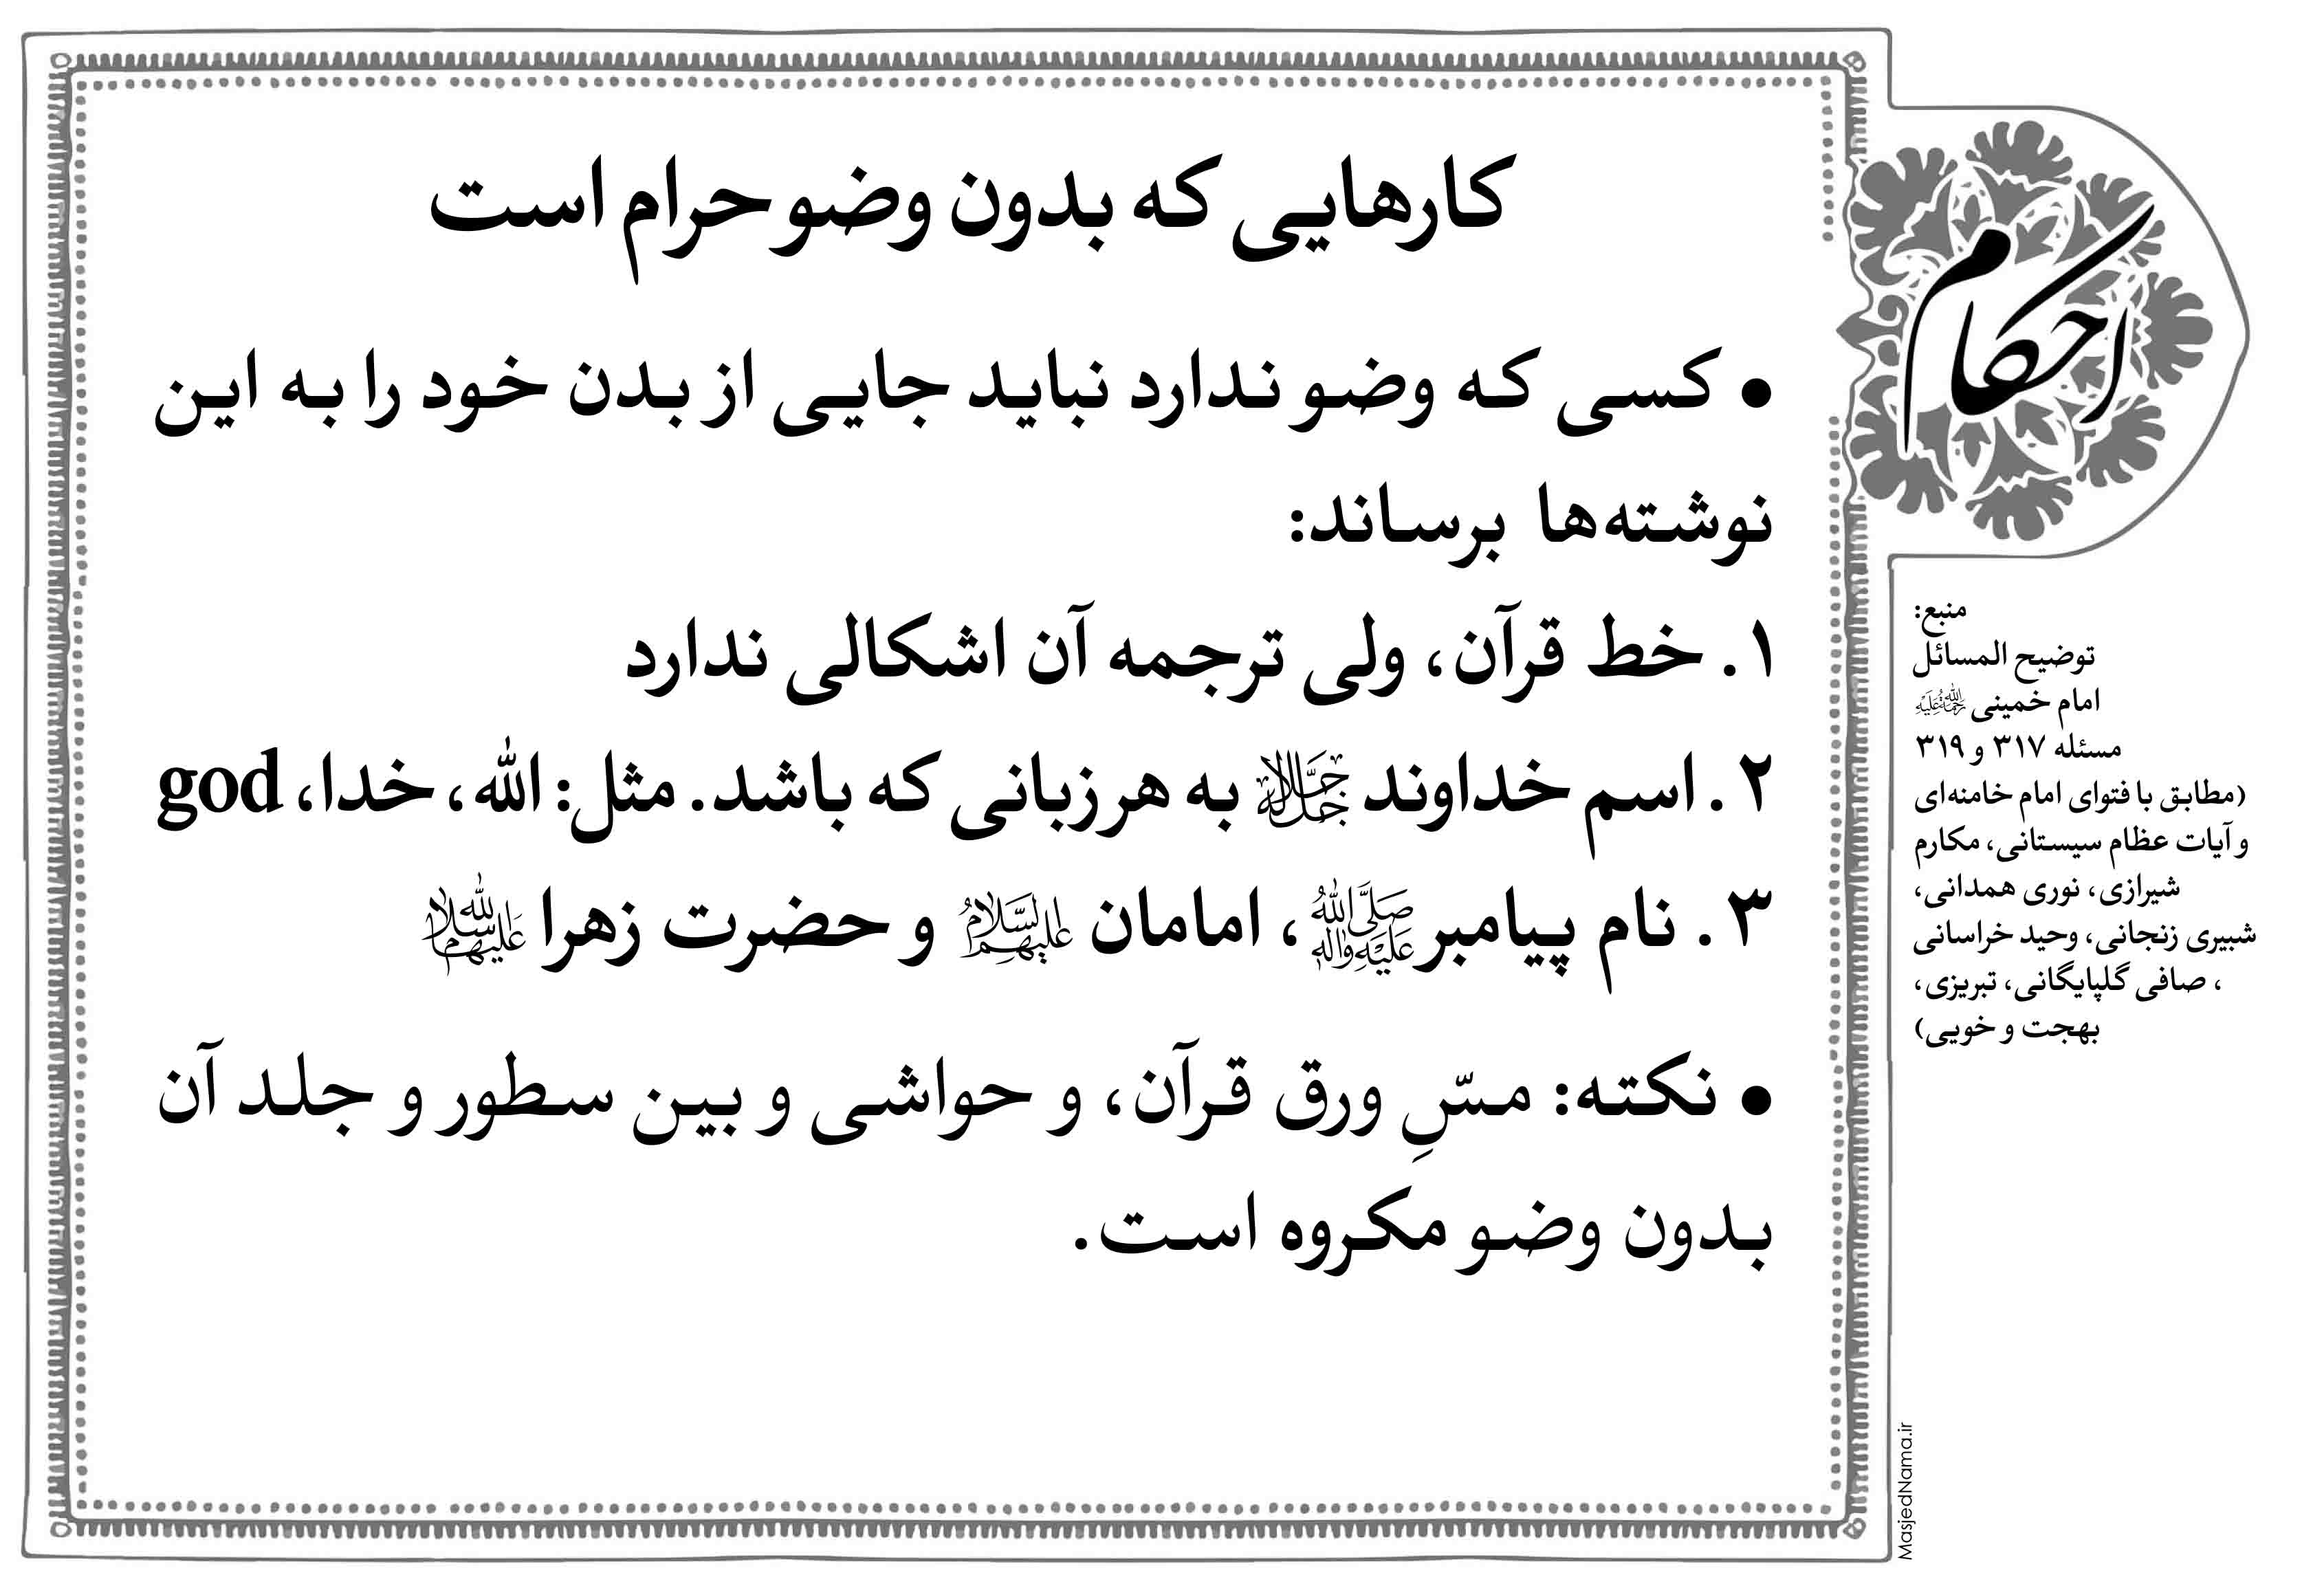 احکام
کارهایی که بدون وضو حرام است
• کسی که وضو ندارد نباید جایی از بدن خود را به این
نوشته‌ها برساند:
۱. خط قرآن، ولی ترجمه آن اشکالی ندارد
۲. اسم خداوند جل جلاله به هر زبانی که باشد. مثل: الله، خدا، god
۳. نام پیامبر صلی الله علیه وآله، امامان علیهم السلام و حضرت زهرا سلام الله علیها
• نکته: مسّ‌ِ ورق قرآن، و حواشی و بین سطور و جلد آن
بدون وضو مکروه است.
منبع:
توضیح المسائل
امام خمینی رحمة الله علیه
مسئله ۳۱۷ و ۳۱۹
(مطابق با فتوای امام خامنه‌ای
و آیات عظام سیستانی، مکارم
شیرازی، نوری همدانی،
شبیری زنجانی، وحید خراسانی
، صافی گلپایگانی، تبریزی،
بهجت و خویی)
MasjedNama.ir